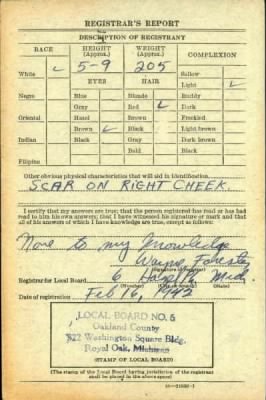 REGISTRAR'S REPORT
DESCRIPTION OF REGISTRANT
RACE HEIGHT (Approx.) WEIGHT (Approx.) COMPLEXION
White 5-9 205 Sallow
EYES HAIR Light
Negro Blue Blonde Ruddy
Gray Red Dark
Oriental Hazel Brown Freckled
Brown Black Light brown
Indian Black Gray Dark brown
Bald Black
Filipino
Other obvious physical characteristics that will aid in identification
SCAR ON RIGHT CHEEK.
I certify that my answers are true; that the person registered has read or has had
read to him his own answers; that I have witnessed his signature or mark and that
all of his answers of which I have knowledge are true, except as follows:
None to my knowledge
Wayne
(Signature of registrar)
Registrar for Local Board 6 Mich
(Number) (City or county) (State)
Date of registration Feb 16, 1942
LOCAL BOARD NO. 6
Oakland County
Washington Square Bldg.
Royal Oak, Michigan
(STAMP OF LOCAL BOARD)
(The stamp of the Local Board having jurisdiction of the registrant
shall be placed in the above space)